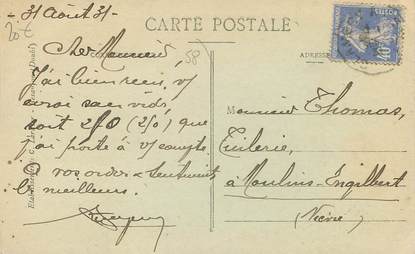 31 Août 31-
20€
CARTE POSTALE
58
ADRESSE
40
Cher Monsieur
J'ai bien reçu, v/
envoi sacs vides,
soit 250 (250) que
j'ai porté à v/ compte
A vos ordres & Sentiments
les meilleurs.
Monsieur Thomas,
Tuilerie,
à Moulins-Engilbert
(Nièvre)